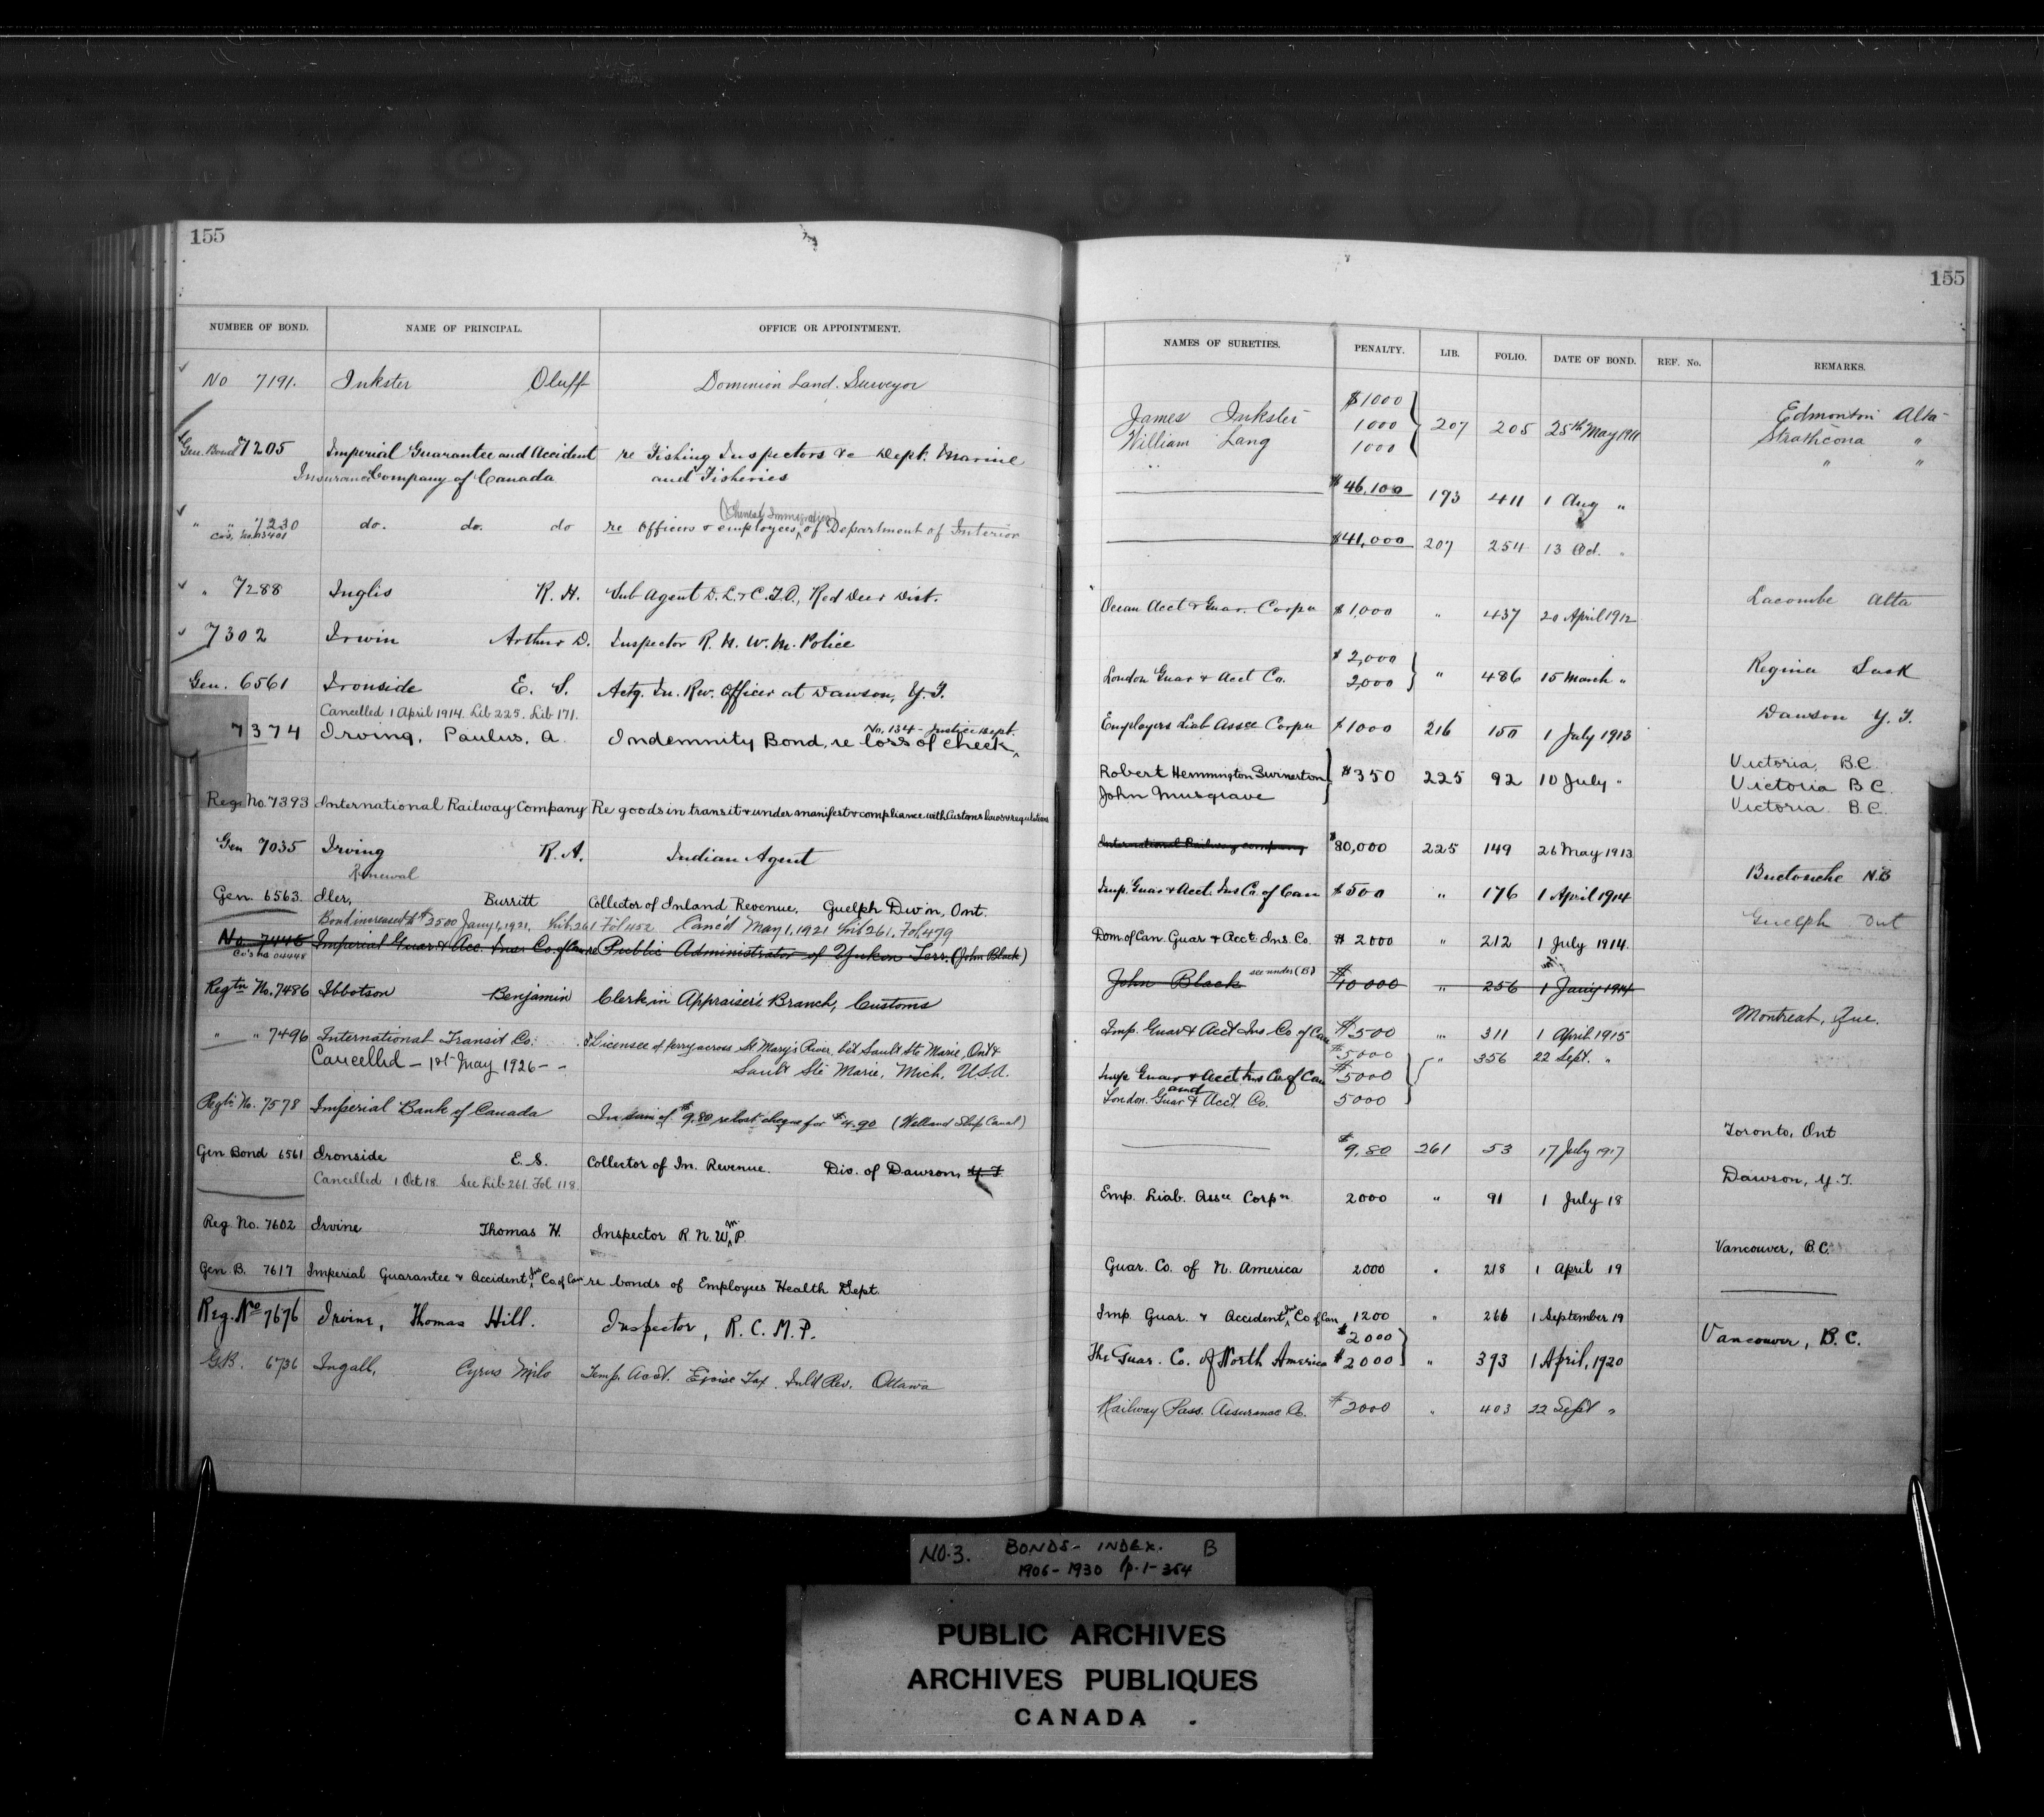 155
NUMBER OF BOND. NAME OF PRINCIPAL. OFFICE OR APPOINTMENT.
No 7191. Inkster Oluff Dominion Land Surveyor
Gen. Bond 7205 Imperial Guarantee and Accident re Fishing Inspectors &c Dept. Marine
Insurance Company of Canada and Fisheries
(Chinese Immigration)
" " 7230 do. do. do re Officers & employees of Department of Interior
Co's. No. 03401
" 7288 Inglis R. H. Sub Agent D. L. & C. T. O., Red Deer Dist.
7302 Irwin Arthur D. Inspector R. N. W. M. Police
Gen. 6561 Ironside E. S. Actg. In. Rev. Officer at Dawson, Y. T.
Cancelled 1 April 1914. Lib 225. Lib 171.
No. 134 - Justice Dept.
7374 Irving, Paulus. A. Indemnity Bond, re loss of check
Reg. No. 7393 International Railway Company Re goods in transit & under manifest & compliance with Customs laws & regulations
Gen 7035 Irving R. A. Indian Agent
Renewal
Gen. 6563. Iler, Burritt Collector of Inland Revenue, Guelph Div'n, Ont.
Bond increased to $3500 Jany 1, 1921, Lib 261 Fol 452 Canc'd May 1, 1921 Lib 261, Fol 479
No. 7446 Imperial Guar & Acc. Insc. Co. of Can re Public Administrator of Yukon Terr. (John Black)
Co's No 04448
Regtn No. 7486 Ibbotson Benjamin Clerk in Appraiser's Branch, Customs
" " 7496 International Transit Co. Licensee of ferry across St. Mary's River, bet Sault Ste Marie, Ont &
Cancelled - 1st May 1926 - - Sault Ste Marie, Mich, U.S.A.
Regtn No. 7578 Imperial Bank of Canada In sum of $9.80 re lost cheque for $4.90 (Welland Ship Canal)
Gen Bond 6561 Ironside E. S. Collector of In. Revenue. Div. of Dawson, Y. T.
Cancelled 1 Oct 18 See Lib 261. Fol 118.
Reg. No. 7602 Irvine Thomas H. Inspector R. N. W. M P.
Gen B. 7617 Imperial Guarantee & Accident Ins Co. of Can re bonds of Employees Health Dept.
Reg. No 7676 Irvine, Thomas Hill. Inspector, R. C. M. P.
G.B. 6736 Ingall, Cyrus Milo Temp. Acct. Excise Tax. Inld Rev. Ottawa
155
NAMES OF SURETIES. PENALTY. LIB. FOLIO. DATE OF BOND. REF. No. REMARKS.
$1000 Edmonton Alta
James Inkster 1000 207 205 25th May 1911 Strathcona "
William Lang 1000 " "
$46,100 193 411 1 Aug "
$41,000 207 254 13 Oct. "
Ocean Acct & Guar. Corpn $1,000 " 437 20 April 1912 Lacombe Alta
$2,000
London Guar & Acct Co. 2,000 " 486 15 March " Regina Sask
Employers Liab Assce Corpn $1000 216 150 1 July 1913 Dawson Y. T.
Victoria, B.C.
Robert Hemmington Swinerton $350 225 92 10 July " Victoria B C.
John Musgrave Victoria. B.C.
International Railway Company $80,000 225 149 26 May 1913
Imp. Guar & Acct. Ins Co. of Can $500 " 176 1 April 1914 Buctouche N.B
Dom. of Can. Guar & Acct. Ins. Co. $2000 " 212 1 July 1914. Guelph Ont
John Black see under (B) $10 000 " 256 1 Jan'y 1914
Imp. Guar & Acct Ins Co. of Can $500 " 311 1 April 1915 Montreal, Que.
$5000 " 356 22 Sept. "
Imp Guar & Acct Ins Co of Can $5000
and
London. Guar & Acct. Co. 5000
$9.80 261 53 17 July 1917 Toronto, Ont
Emp. Liab. Assce Corpn 2000 " 91 1 July 18 Dawson, Y.T.
Guar. Co. of N. America 2000 " 218 1 April 19 Vancouver, B.C.
Imp Guar. & Accident Ins Co of Can 1200 " 266 1 September 19
$2000
The Guar. Co. of North America $2000 " 393 1 April, 1920 Vancouver, B.C.
Railway Pass. Assurance Co. $2000 " 403 22 Sept "
NO. 3. BONDS - INDEX. B
1906 - 1930 p. 1 - 354
PUBLIC ARCHIVES
ARCHIVES PUBLIQUES
CANADA